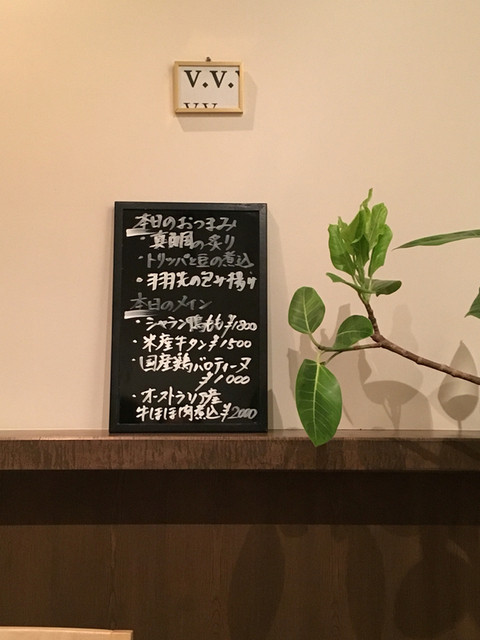 V.V.
本日のおつまみ
・真鯛の炙り
・トリッパと豆の煮込
・羽先の包み揚げ
本日のメイン
・シャラン鴨もも¥1800
・米産牛タン¥1500
・国産鶏バロティーヌ
¥1000
・オーストラリア産
牛ほほ肉煮込¥2000